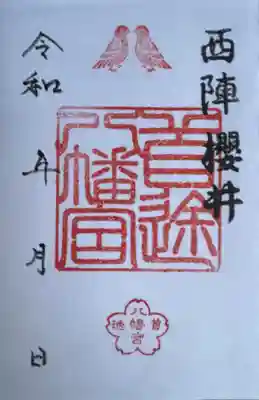 西陣櫻井
首途
八幡宮
令和 年 月 日
首
八幡宮
途